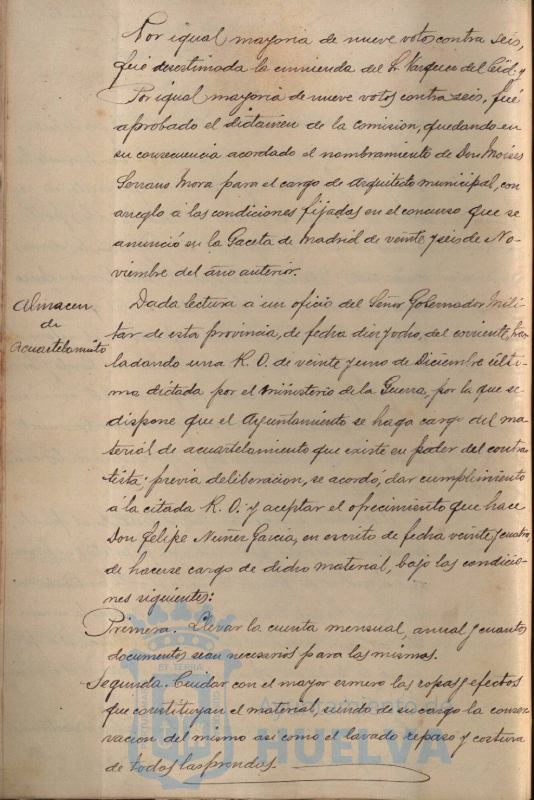 Por igual mayoria de nueve votos contra seis,
fué desestimada la enmienda del Sr. Vazquez del Cid y
Por igual mayoria de nueve votos contra seis, fué
aprobado el dictamen de la comision, quedando en
su consecuencia acordado el nombramiento de Don Moises
Serrano Mora para el cargo de Arquitecto municipal, con
arreglo á las condiciones fijadas en el concurso que se
anunció en la Gaceta de Madrid de veinte y seis de No-
viembre del año anterior.
Almacen
de
Acuartelamiento
Dada lectura á un oficio del Señor Gobernador Mili-
tar de esta provincia, de fecha diez y ocho, del corriente, tras-
ladando una R. O. de veinte y uno de Diciembre últi-
mo dictada por el Ministerio de la Guerra, por la que se
dispone que el Ayuntamiento se haga cargo del ma-
terial de acuartelamiento que existe en poder del contra-
tista; previa deliberacion, se acordó, dar cumplimiento
á la citada R. O. y aceptar el ofrecimiento que hace
Don Felipe Nuñez Garcia, en escrito de fecha veinte y cuatro,
de hacerse cargo de dicho material, bajo las condicio-
nes siguientes:
Primera. Llevar la cuenta mensual, anual y cuantos
documentos sean necesarios para las mismas.
Segunda. Cuidar con el mayor esmero las ropas y efectos
que constituyan el material, siendo de su cargo la conser-
vacion del mismo asi como el lavado repaso y costura
de todas las prendas.
HUELVA